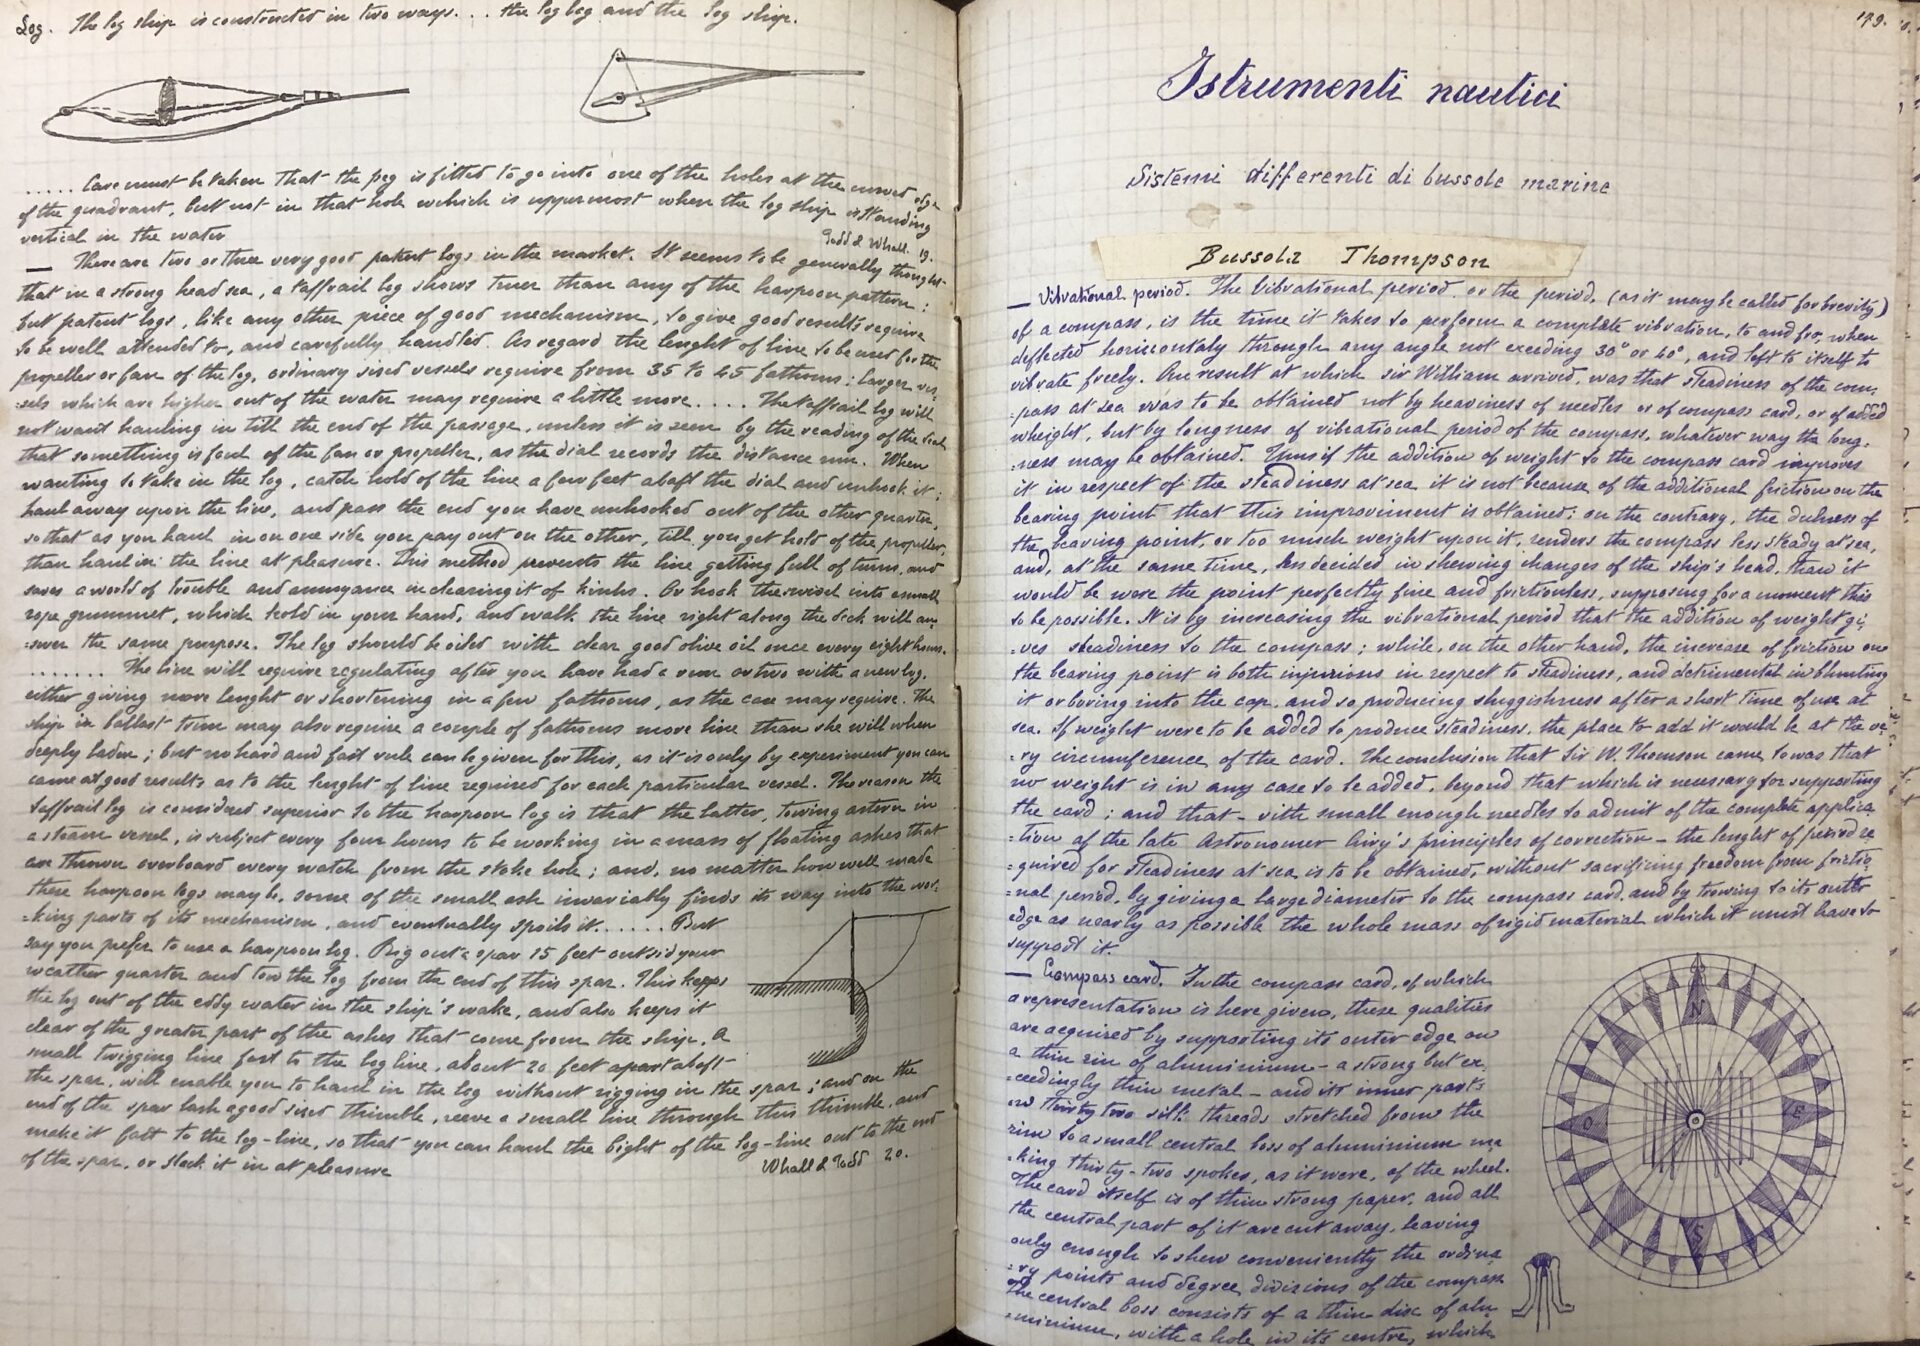 Log. The log ship is constructed in two ways... the log bag and the log ship.
..... Care must be taken that the peg is fitted to go into one of the holes at the curved edge
of the quadrant, but not in that hole wchich is uppermost when the log ship is standing
vertical in the water
Todd & Whall. 19.
— There are two or three very good patent logs in the market. It seems to be generally thought
that in a strong head sea, a taffrail log shows truer than any of the harpoon pattern;
but patent logs, like any other piece of good mechanism, to give good results require
to be well attended to, and carefully handled. As regard the lenght of line to be used for the
propeller or fan of the log, ordinary sized vessels require from 35 to 45 fathoms; larger ves-
sels which are higher out of the water may require a little more.... The taffrail log will
not want hauling in till the end of the passage, unless it is seen by the reading of the dial
that something is foul of the fan or propeller, as the dial records the distance run. When
wanting to take in the log, catch hold of the line a few feet abaft the dial and unhook it;
haul away upon the line, and pass the end you have unhooked out of the other quarter,
so that as you haul in on one side you pay out on the other, till you get hold of the propeller,
than haul in the line at pleasure. This method prevents the line getting full of turns, and
saves a world of trouble and annoyance in clearing it of kinks. Or hook the swivel into a small
rope grummet, which hold in your hand, and walk the line right along the deck will an-
=swer the same purpose. The log should be oiled with clear good olive oil once every eight hours.
....... The line will require regulating after you have had a run or two with a new log,
either giving more lenght or shortening in a few fathoms, as the case may require. The
ship in ballast trim may also require a couple of fathoms more line than she will when
deeply laden; but no hard and fast rule can be given for this, as it is only by experiment you can
come at good results as to the lenght of line required for each particular vessel. The reason the
taffrail log is considered superior to the harpoon log is that the latter, towing astern in
a steam vessel, is subject every four hours to be working in a mass of floating ashes that
are thrown overboard every watch from the stoke hole; and, no matter how well made
these harpoon logs may be, some of the small ash invariably finds its way into the wor-
=king parts of its mechanism, and eventually spoils it...... But
say you prefer to use a harpoon log. Rig out a spar 15 feet outsid your
weather quarter and tow the log from the end of this spar. This keeps
the log out of the eddy water in the ship's wake, and also keeps it
clear of the greater part of the ashes that come from the ship. A
small twigging line fast to the log line, about 20 feet apart abaft
the spar, will enable you to haul in the log without rigging in the spar; and on the
end of the spar lash a good sized thimble, reeve a small line through this thimble, and
make it fast to the log-line, so that you can haul the bight of the log-line out to the end
of the spar, or slack it in at pleasure
Whall & Todd 20.
179.
Istrumenti nautici
Sistemi differenti di bussole marine
Bussola Thompson
— Vibrational period. The Vibrational period, or the period, (as it may be called for brevity)
of a compass, is the time it takes to perform a complete vibration, to and fro, when
deflected horizontaly through any angle not exceeding 30° or 40°, and left to itself to
vibrate freely. One result at which sir William arrived, was that steadiness of the com-
-pass at sea was to be obtained not by heaviness of needles or of compass card, or of added
wheight, but by longness of vibrational period of the compass, whatever way the long-
-ness may be obtained. Thus if the addition of weight to the compass card improves
it in respect of the steadiness at sea it is not because of the additional friction on the
bearing point that this improviment is obtained; on the contrary, the dulness of
the bearing point, or too much weight upon it, renders the compass less steady at sea,
and, at the same time, less decided in shewing changes of the ship's head, than it
would be were the point perfectly fine and frictionless, supposing for a moment this
to be possible. It is by increasing the vibrational period that the addition of weight gi-
=ves steadiness to the compass; while, on the other hand, the increase of friction on
the bearing point is both injurious in respect to steadiness, and detrimental in blunting
it or boring into the cap, and so producing sluggishness after a short time of use at
sea. If weight were to be added to produce steadiness, the place to add it would be at the ve-
-ry circumference of the card. The conclusion that Sir W. Thomson came to was that
no weight is in any case to be added, beyond that which is necessary for supporting
the card; and that - vith small enough needles to admit of the complete applica-
=tion of the late Astronomer Airy's principles of correction - the lenght of period re
=quired for steadiness at sea is to be obtained, without sacrificing freedom from frictio-
=nal period, by giving a large diameter to the compass card, and by trowing to its outer
edge as nearly as possible the whole mass of rigid material which it must have to
support it.
— Compass card. In the compass card, of which
a representation is here given, these qualities
are acquired by supporting its outer edge on
a thin rim of aluminium - a strong but ex-
=ceedingly thin metal - and its inner parts
on thirty two silk threads stretched from the
rim to a small central boss of aluminium ma
=king thirty-two spokes, as it were, of the wheel.
The card itself is of thin strong paper, and all
the central part of it are cut away, leaving
only enough to shew conveniently the ordina
=ry points and degree divisions of the compass
The central boss consists of a thin disc of alu
=minium, with a hole in its centre, which
N
E
S
O